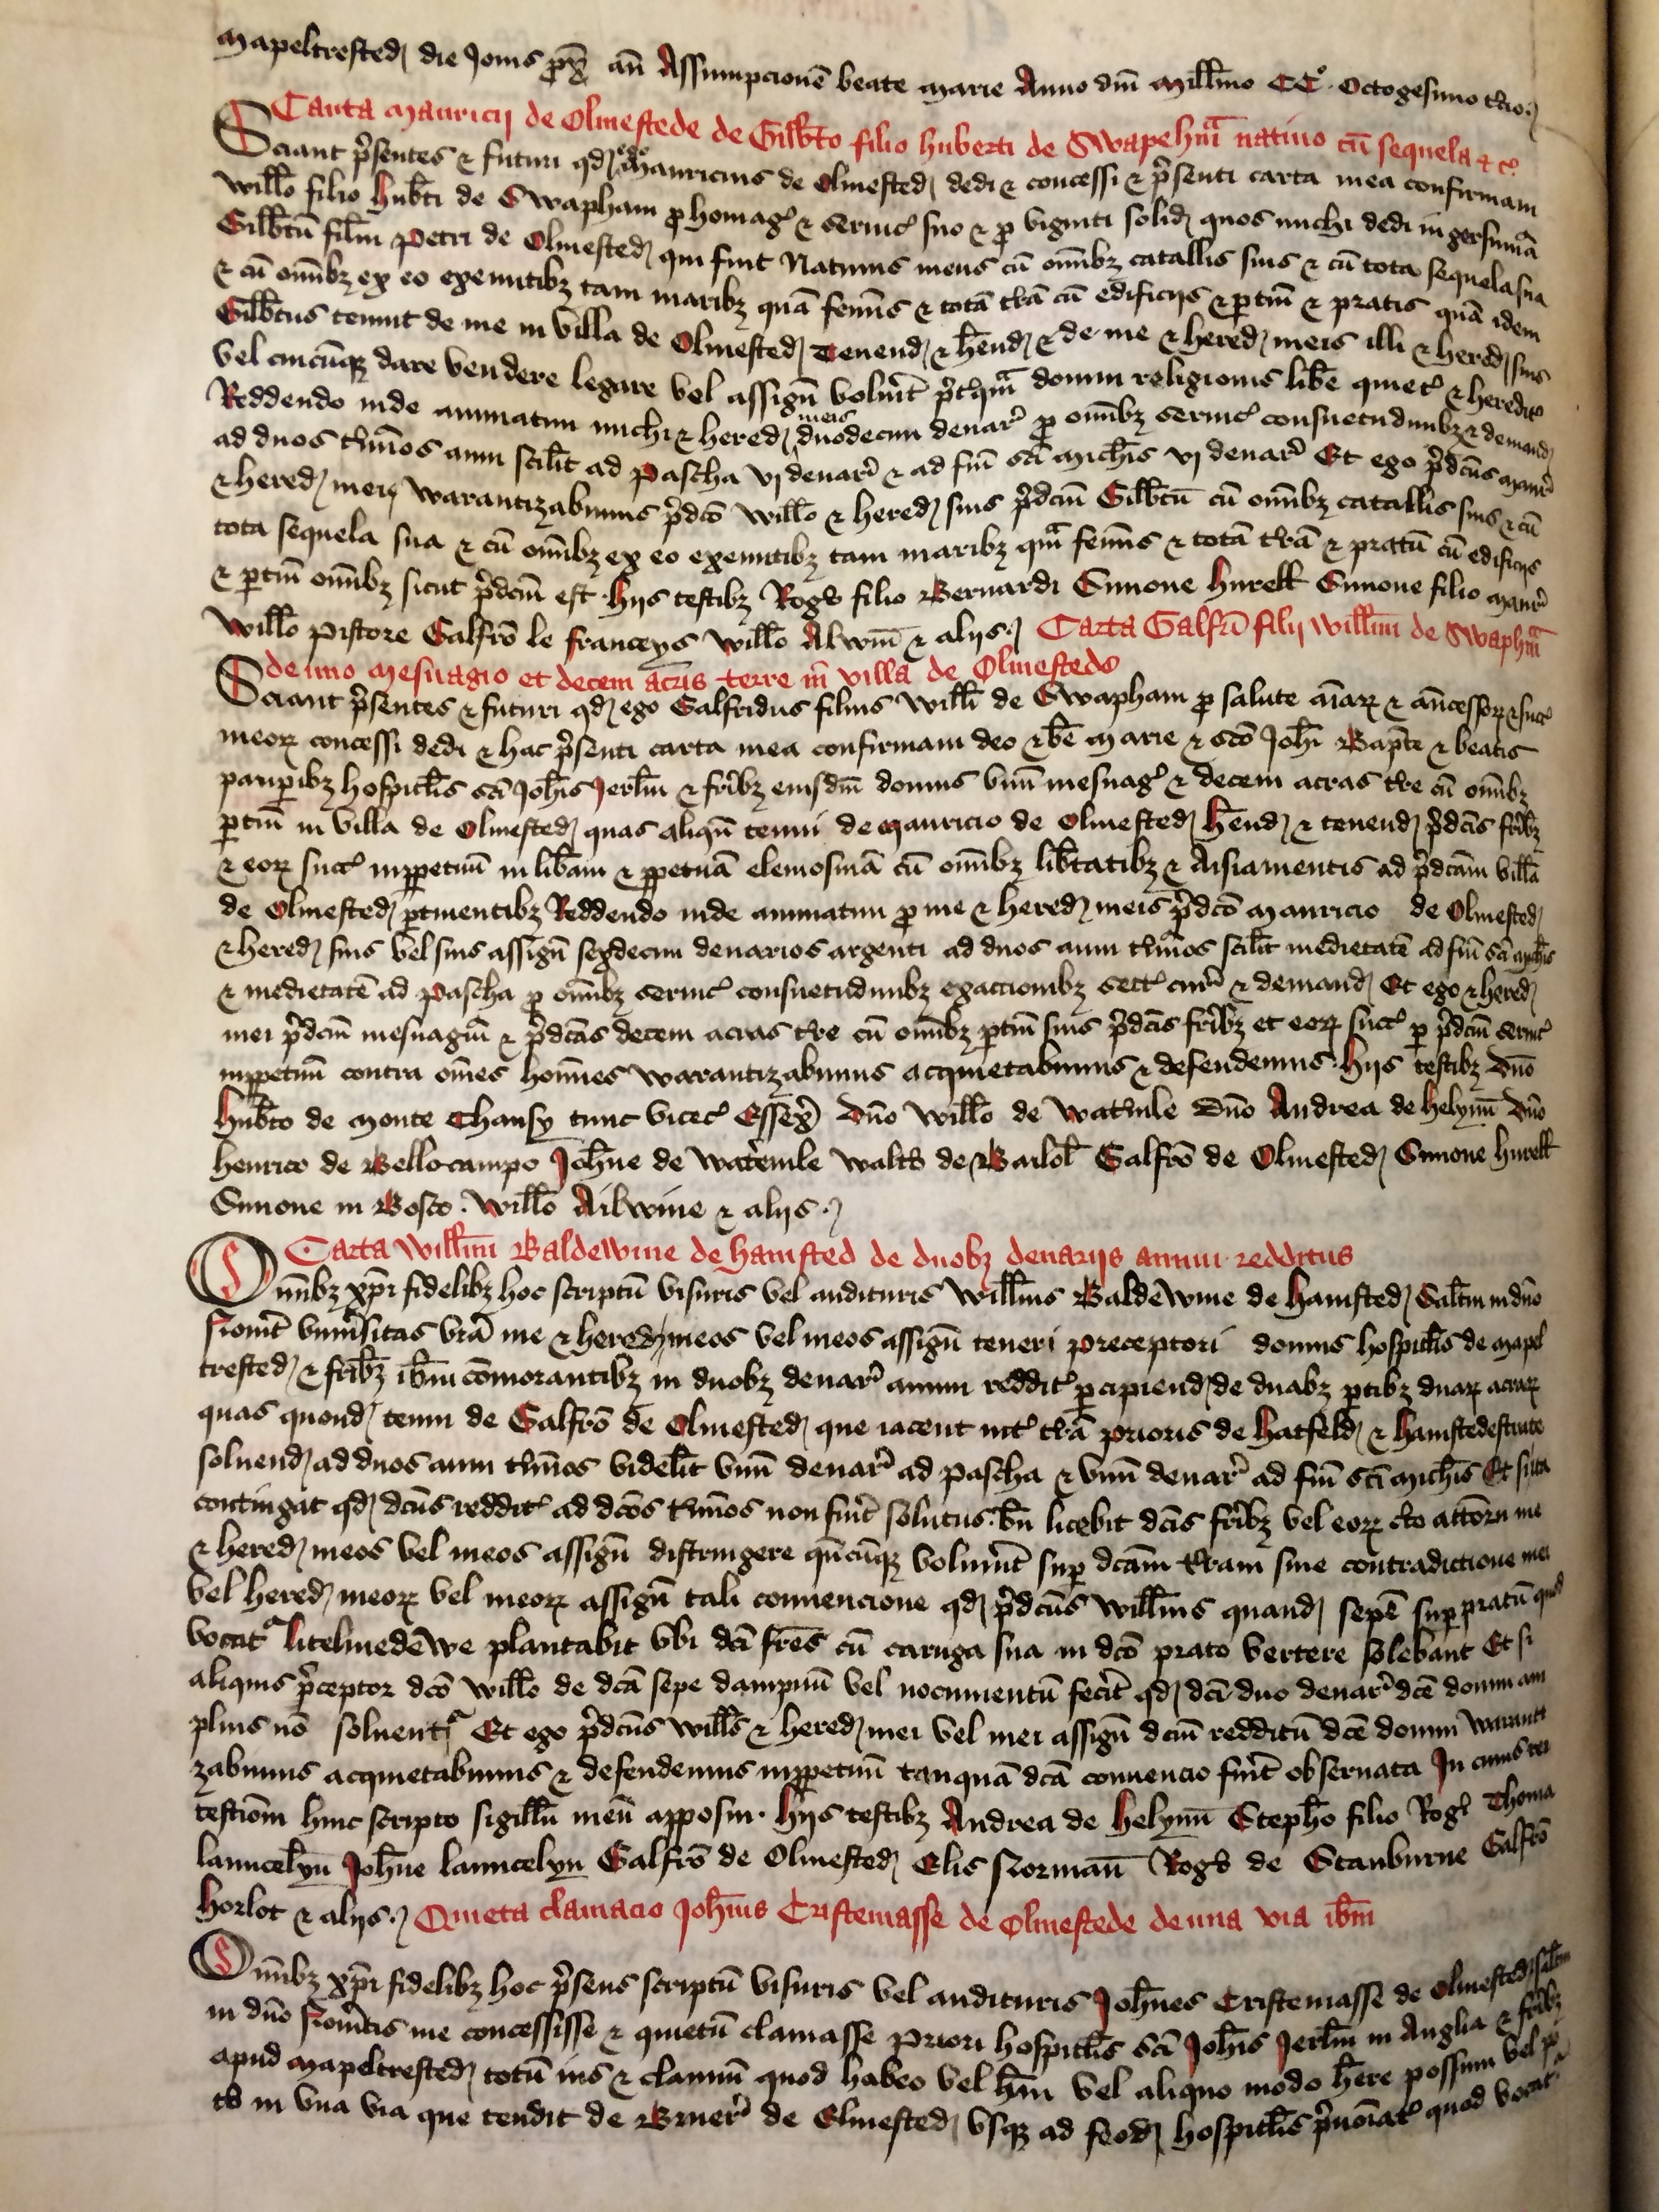 Mapeltrested die Jovis px̄ an̄ Assumpcionē beate Marie Anno dn̄i Mill̄mo CC° Octogesimo t̄cio
Carta Mauricij de Olmestede de Gilb̄to filio Huberti de Swaphm̄ nativo cū sequela ⁊ cͦ
Sciant p̄sentes ⁊ futuri qd̄ ego Mauricius de Olmested dedi ⁊ concessi ⁊ p̄senti carta mea confirmam
Will̄o filio Hub̄ti de Swapham p homag̉ ⁊ servic̉ suo ⁊ p viginti solid̉ quos michi dedi in gersumā
Gilb̄tū fil̄m Petri de Olmested qui fuit Nativus meus cū om̄ibȝ catallis suis ⁊ cū tota sequela sua
⁊ cū om̄ibȝ ex eo exeuntibȝ tam maribȝ quā femīs ⁊ totā t̄rā cū edificijs ⁊ ptiñ ⁊ pratis quā idem
Gilb̄tus tenuit de me in villa de Olmested Tenend̉ ⁊ h̄end̉ ⁊ de me ⁊ hered̉ meis illi ⁊ hered̉ suis
vel cuicūqȝ dare vendere legare vel assigñ voluīt p̄tqm̄ domui religionis lib̄e quiet̉ ⁊ heredit̉
Reddendo inde annuatim michi ⁊ hered̉ meis duodecim denar̉ p om̄ibȝ servic̉ consuetudinibȝ ⁊ demand̉
ad duos t̄mīos anni scil̄t ad Pascha vj denar̉ ⁊ ad fm̄ sc̄i Mich̄is vj denar̉ Et ego p̄dc̄us Maur̉
⁊ hered̉ mei warantizabimus p̄dc̄o Will̄o ⁊ hered̉ suis p̄dc̄m Gilb̄tū cū om̄ibȝ catallis suis ⁊ cū
tota sequela sua ⁊ cū om̄ibȝ ex eo exeuntibȝ tam maribȝ qm̄ femīs ⁊ totā t̄rā ⁊ pratū cū edificijs
⁊ ptiñ om̄ibȝ sicut p̄dc̄m est Hijs testibȝ Rog̉o filio Bernardi Simone Hurell Simone filio Maur̉
Will̄o Pistore Galfr̄o le Franceys Will̄o Alwin̄ ⁊ alijs Carta Galfr̄i filij Will̄mi de Swaphm̄
de uno mesuagio et decem acris terre in villa de Olmestede
Sciant p̄sentes ⁊ futuri qd̄ ego Galfridus filius Will̄i de Swapham p salute aīaꝝ ⁊ añcessoꝝ ⁊ succ̉
meoꝝ concessi dedi ⁊ hac p̄senti carta mea confirmam deo ⁊ b̄e Marie ⁊ sc̄o Joh̄i Bapt̄e ⁊ beatis
paupibȝ hospital̄is sc̄i Joh̄is Jerl̄m ⁊ fr̄ibȝ eiusdm̄ domus unū mesuag̉ ⁊ decem acras t̄re cū om̄ibȝ
ptiñ in villa de Olmested quas aliqñ tenui de Mauricio de Olmested h̄end̉ ⁊ tenend̉ p̄dc̄is fr̄ibȝ
⁊ eoꝝ succ̉ inppetuū in lib̄am ⁊ ppetuā elemosinā cū om̄ibȝ lib̄tatibȝ ⁊ Aisiamentis ad p̄dc̄am villā
de Olmested ptinentibȝ Reddendo inde annuatim p me ⁊ hered̉ meis p̄dc̄o Mauricio de Olmested
⁊ hered̉ suis vel suis assigñ sexdecim denarios argenti ad duos anni t̄mīos scil̄t medietatē ad fm̄ sc̄i Mich̄is
⁊ medietatē ad Pascha p om̄ibȝ servic̉ consuetudinibȝ exaccionibȝ sect̉ cur̉ ⁊ demand̉ Et ego ⁊ hered̉
mei p̄dc̄m mesuagiū ⁊ p̄dc̄as decem acras t̄re cū om̄ibȝ ptiñ suis p̄dc̄is fr̄ibȝ et eoꝝ succ̉ p p̄dc̄m servic̉
inppetuū contra om̄es homīes warantizabimus acquietabimus ⁊ defendemus Hijs testibȝ Dn̄o
Hub̄to de Monte Chansy tunc vicec̉ Essex̉ Dn̄o Will̄o de Watvile Dn̄o Andrea de Helyun̄ Dn̄o
Henrico de Bellocampo Joh̄ne de Watevile Walt̉o de Bailol̄ Galfr̄o de Olmested Simone Hurell
Simone in Bosco Will̄o Ailwine ⁊ alijs
Carta Will̄mi Baldewine de Hamsted de duobȝ denarijs annui redditus
Om̄ibȝ xp̄i fidelibȝ hoc scriptū visuris vel audituris Will̄ms Baldewine de Hamsted Sal̄tm in dn̄o
Noūit univ̄sitas vr̄a me ⁊ hered̉ meos vel meos assigñ teneri Preceptori domus hospital̄is de Mapel
trested ⁊ fr̄ibȝ ib̄m cōmorantibȝ in duobȝ denar̉ annui reddit̉ pcipiend̉ de duabȝ ptibȝ duaꝝ acraꝝ
quas quond̉ tenui de Galfr̄o de Olmested que iacent int̉ t̄rā Prioris de Hatfeld ⁊ Hamstedestrate
solvend̉ ad duos anni t̄mīos videl̄it unū denar̉ ad Pascha ⁊ unū denar̉ ad fm̄ sc̄i Mich̄is Et si ita
contingat qd̄ dc̄us reddit̉ ad dc̄os t̄mīos non fuīt solutus bn̄ licebit dc̄is fr̄ibȝ vel eoꝝ c̄to attorn̄ me
⁊ hered̉ meos vel meos assigñ distringere qn̄cūqȝ voluīnt sup dc̄am t̄ram sine contradictione mei
vel hered̉ meoꝝ vel meoꝝ assigñ tali convencione qd̄ p̄dc̄us Will̄ms quand̉ sepē sup pratū quod
vocat̉ litelmedewe plantabit ubi dc̄i fr̄es cū caruga sua in dc̄o prato vertere solebant Et si
aliquis p̄ceptor dc̄o Will̄o de dc̄a sepe dampnū vel nocumentū fecīt qd̄ dc̄i duo denar̉ dc̄e domui am
plius nō solvent̉ Et ego p̄dc̄us Will̄s ⁊ hered̉ mei vel mei assigñ dc̄m redditū dc̄e domui waranti
zabimus acquietabimus ⁊ defendemus inppetuū tanquā dc̄a convencio fuīt observata In cuius rei
testiom̄ huic scripto sigillū meū apposui Hijs testibȝ Andrea de Helyun̄ Steph̄o filio Rog̉ Thoma
Launcelyn̄ Joh̄ne Launcelyn Galfr̄o de Olmested Elis Norman̄ Rog̉o de Stanburne Galfr̄o
Horlot ⁊ alijs Quieta clamacio Joh̄nis Cristemasse de Olmestede de una via ib̄m
Om̄ibȝ xp̄i fidelibȝ hoc p̄sens scriptū visuris vel audituris Joh̄nes Cristemasse de Olmested sal̄tm
in dn̄o Nov̄itis me concessisse ⁊ quietū clamasse Priori hospital̄is sc̄i Joh̄is Jerl̄m in Anglia ⁊ fr̄ibȝ
apud Mapeltrested totū ius ⁊ clamiū quod habeo vel h̄ui vel aliquo modo h̄ere possum vel po
t̉o in una via que tendit de Bruer̉ de Olmested usqȝ ad feod̉ hospital̄is p̄noīat̉ quod vocat̉